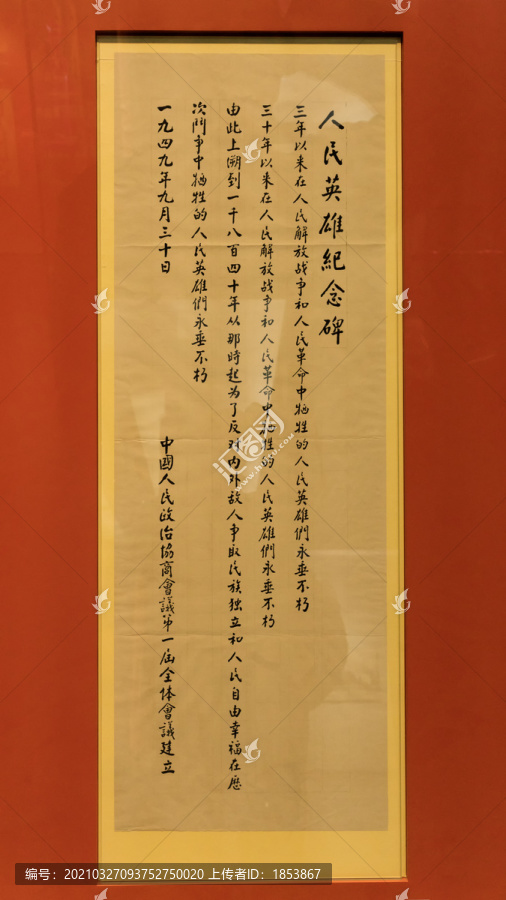 人民英雄紀念碑
三年以来在人民解放战争和人民革命中牺牲的人民英雄們永垂不朽
三十年以来在人民解放战争和人民革命中牺牲的人民英雄們永垂不朽
由此上溯到一千八百四十年从那時起为了反对内外敌人争取民族独立和人民自由幸福在歷
次鬥争中牺牲的人民英雄們永垂不朽
一九四九年九月三十日
中國人民政治協商會議第一屆全体會議建立
编号：20210327093752750020 上传者ID：1853867